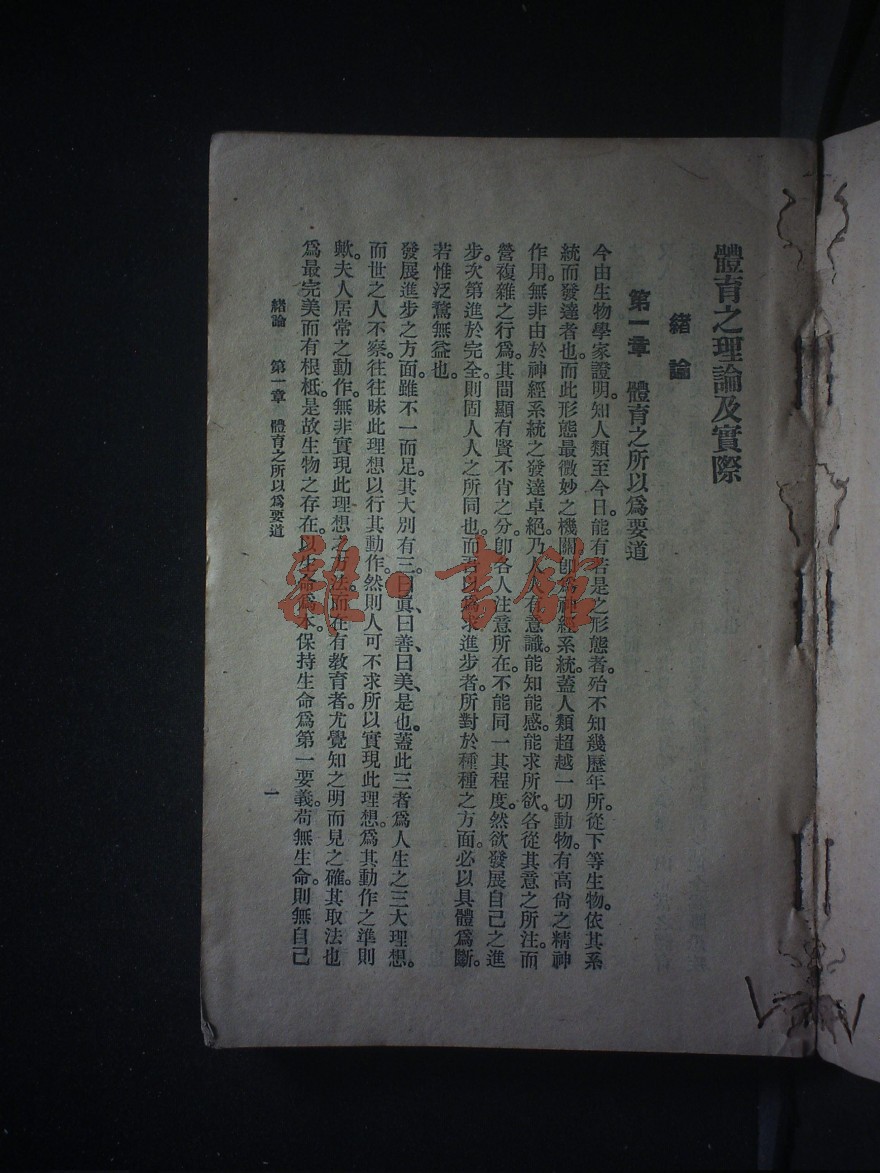 體育之理論及實際
緒論
第一章　體育之所以爲要道
今由生物學家證明。知人類至今日。能有若是之形態者。殆不知幾歷年所。從下等生物。依其系
統而發達者也。而此形態最微妙之機關。卽爲神經系統。蓋人類超越一切動物。有高尙之精神
作用。無非由於神經系統之發達卓絕。乃人人有意識。能知能感。能求所欲。各從其意之所注。而
營複雜之行爲。其間顯有賢不肖之分。卽各人注意所在。不能同一其程度。然欲發展自己之進
步。次第進於完全。則固人人之所同也。而若以爲求進步者。所對於種種之方面。必以具體爲斷。
若惟泛騖無益也。
發展進步之方面。雖不一而足。其大別有三。曰眞、曰善、曰美、是也。蓋此三者爲人生之三大理想。
而世之人不察。往往昧此理想以行其動作。然則人可不求所以實現此理想。爲其動作之準則
歟。夫人居常之動作。無非實現此理想之方法。而在有敎育者。尤覺知之明而見之確。其取法也
爲最完美而有根柢。是故生物之存在。以生命爲本。保持生命爲第一要義。苟無生命。則無自己
緒論　第一章　體育之所以爲要道
一
雜·書館